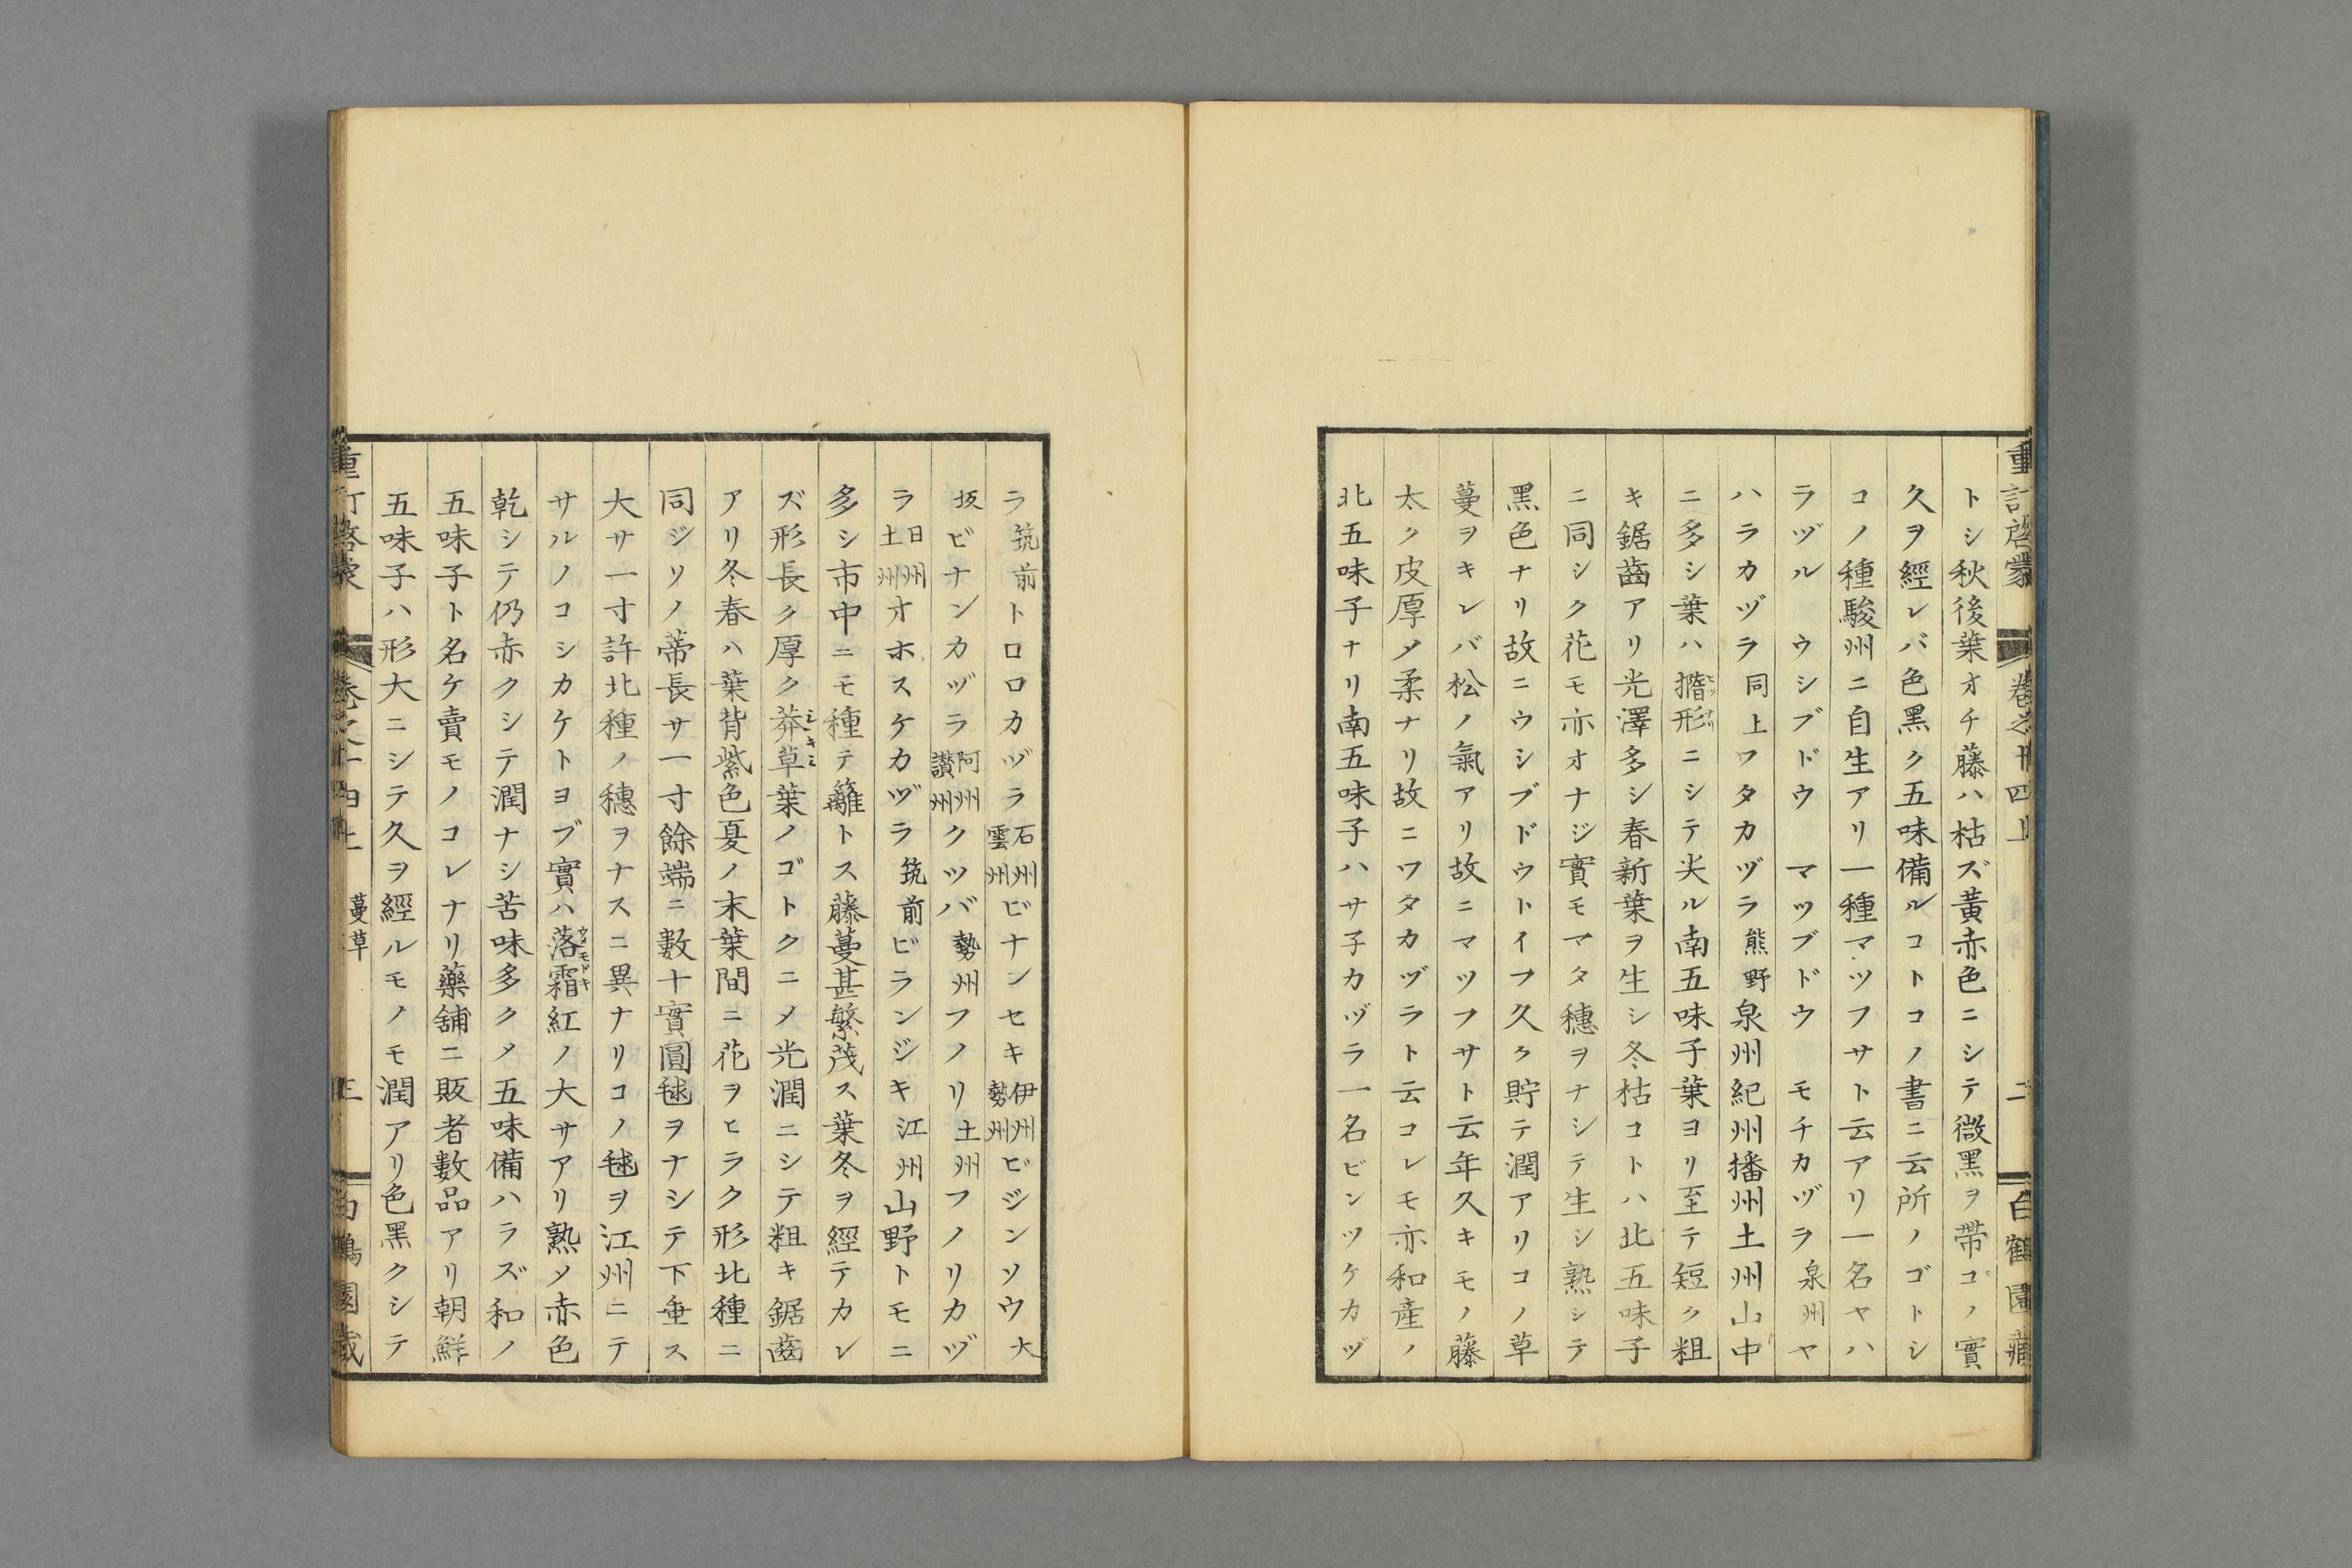 重訂啓蒙 卷之十四上 二 白鶴園藏
トシ秋後葉オチ藤ハ枯ズ黃赤色ニシテ微黑ヲ帶コノ實
久ヲ經レバ色黑ク五味備ルコトコノ書ニ云所ノゴトシ
コノ種駿州ニ自生アリ一種マツフサト云アリ一名ヤハ
ラヅル ウシブドウ マツブドウ モチカヅラ泉州ヤ
ハラカヅラ同上ワタカヅラ熊野泉州紀州播州土州山中
ニ多シ葉ハ撍形ニシテ尖ル南五味子葉ヨリ至テ短ク粗
キ鋸齒アリ光澤多シ春新葉ヲ生シ冬枯コトハ北五味子
ニ同シク花モ亦オナジ實モマタ穗ヲナシテ生シ熟シテ
黑色ナリ故ニウシブドウトイフ久ク貯テ潤アリコノ草
蔓ヲキレバ松ノ氣アリ故ニマツフサト云年久キモノ藤
太ク皮厚メ柔ナリ故ニワタカヅラト云コレモ亦和產ノ
北五味子ナリ南五味子ハサ子カヅラ一名ビンツケカヅ
ラ筑前トロロカヅラ石州雲州ビナンセキ伊州勢州ビジンソウ大
坂ビナンカヅラ阿州讃州クツバ勢州フノリ土州フノリカヅ
ラ日州土州オホスケカヅラ筑前ビランジキ江州山野トモニ
多シ市中ニモ種テ籬トス藤蔓甚繁茂ス葉冬ヲ經テカレ
ズ形長ク厚ク莽草シキミ葉ノゴトクニメ光潤ニシテ粗キ鋸齒
アリ冬春ハ葉背紫色夏ノ末葉間ニ花ヲヒラク形北種ニ
同ジソノ蒂長サ一寸餘端ニ數十實圓毬ヲナシテ下垂ス
大サ一寸許北種ノ穗ヲナスニ異ナリコノ毬ヲ江州ニテ
サルノコシカケトヨブ實ハ落霜紅ウメモドキノ大サアリ熟メ赤色
乾シテ仍赤クシテ潤ナシ苦味多クメ五味備ハラズ和ノ
五味子ト名ケ賣モノコレナリ藥舖ニ販者數品アリ朝鮮
五味子ハ形大ニシテ久ヲ經ルモノモ潤アリ色黑クシテ
重訂啓蒙 卷之十四上 蔓草 三 白鶴園藏